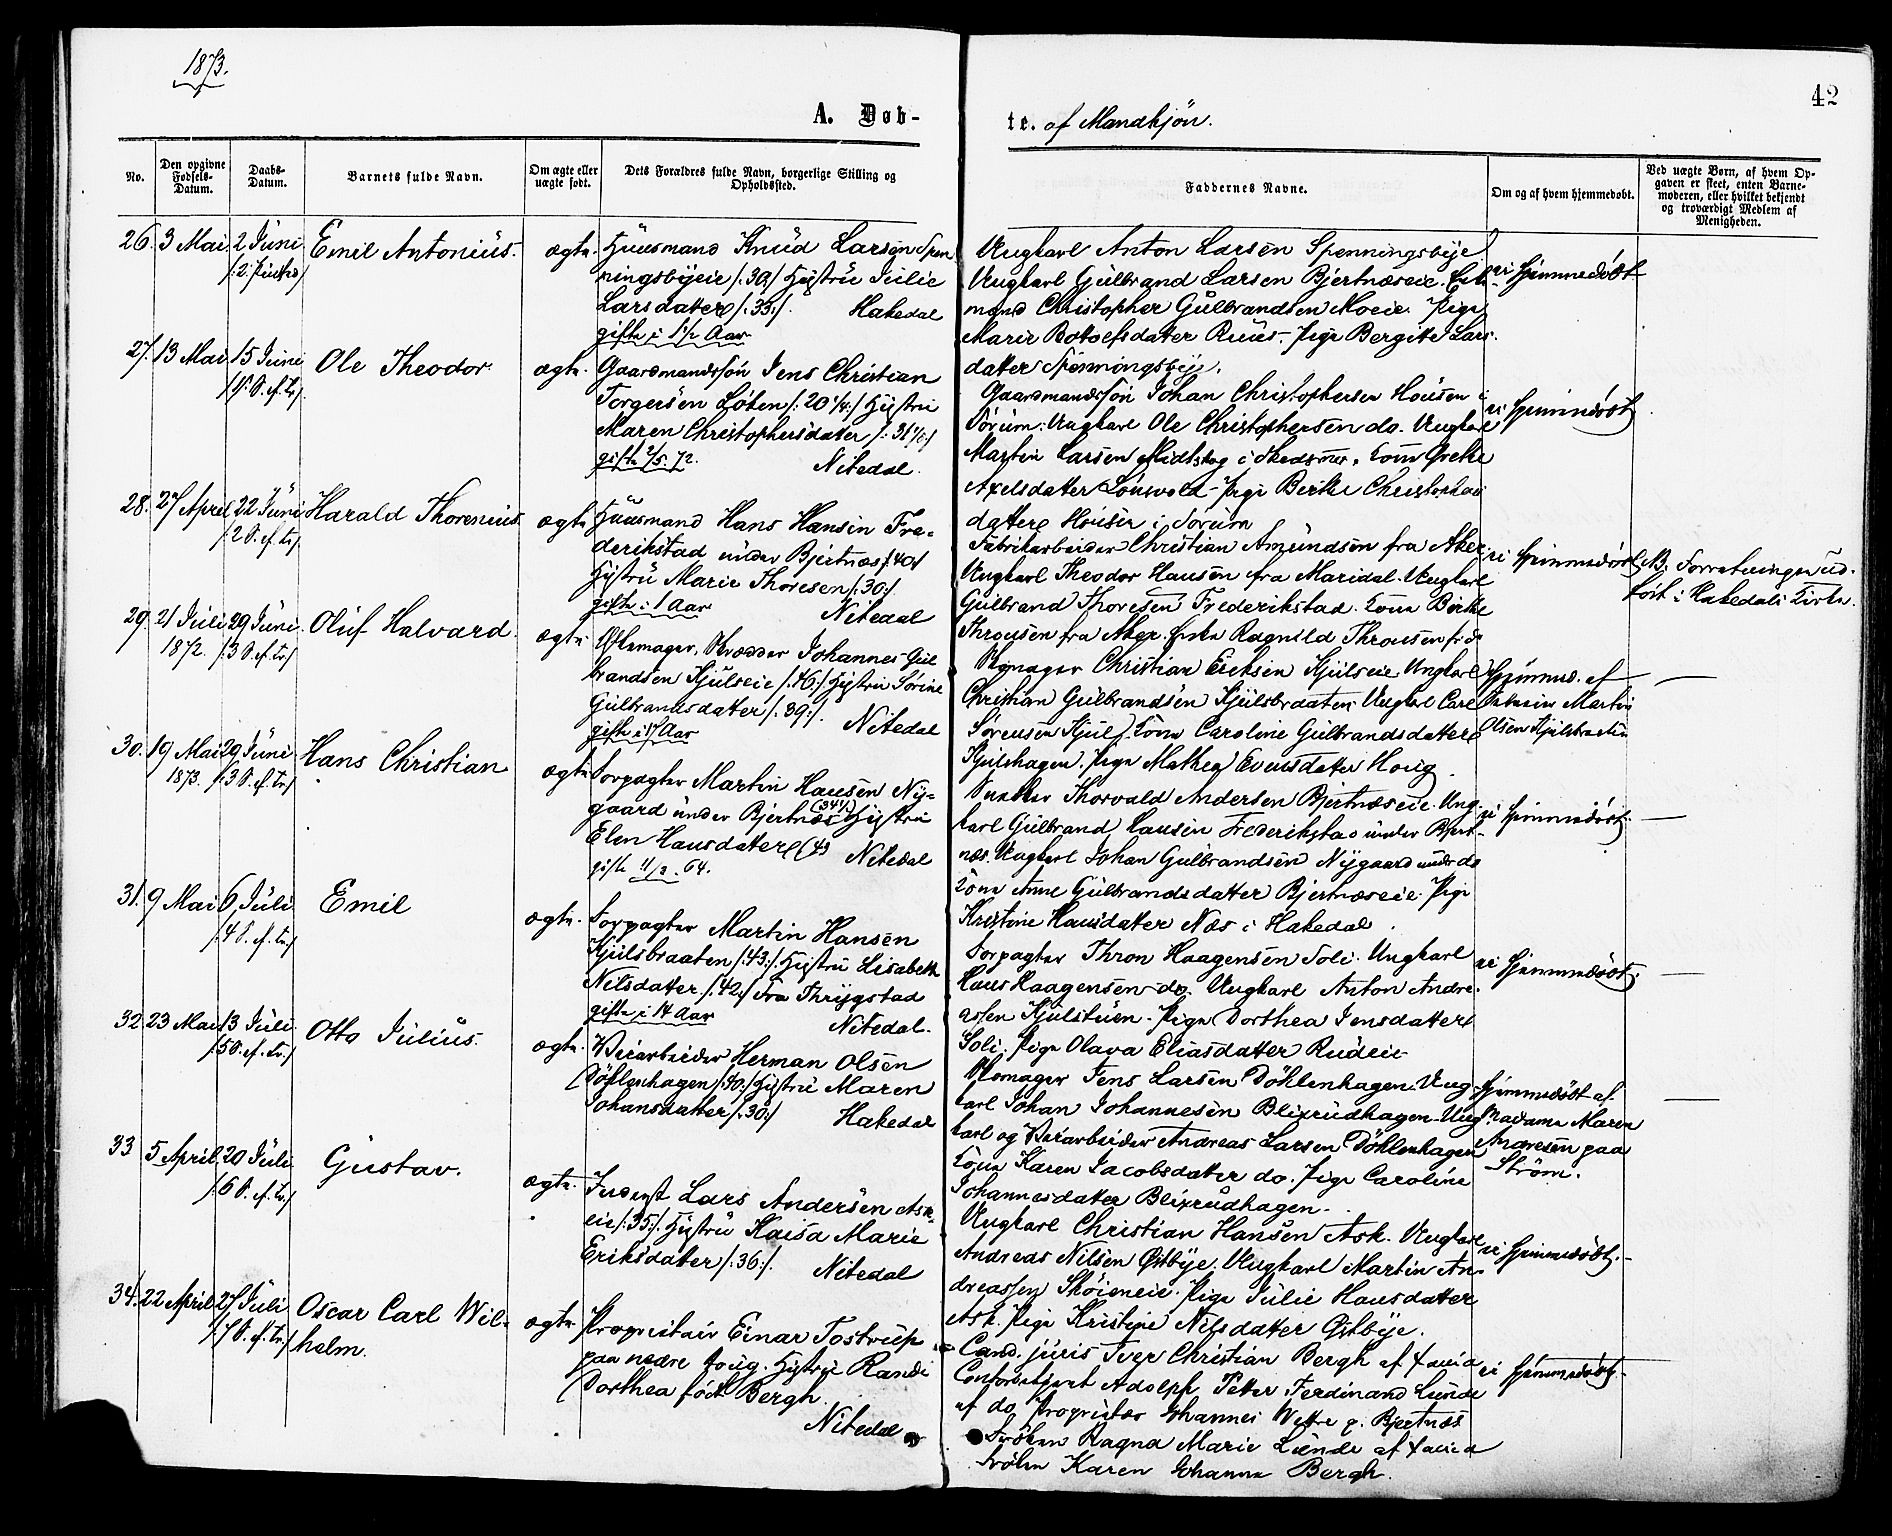 1873.
42
A. Døb-
te. af Mandkjön.
No.
Den opgivne Fødsels-Datum.
Daabs-Datum.
Barnets fulde Navn.
Om ægte eller uægte født.
Dets Forældres fulde Navn, borgerlige Stilling og Opholdssted.
Faddernes Navne.
Om og af hvem hjemmedøbt.
Ved uægte Børn, af hvem Opgaven er skeet, enten Barnemoderen, eller hvilket bekjendt og troværdigt Medlem af Menigheden.
26. 3 Mai 2 Juni Emil Antonius. ægte.
Huusmand Knud Larsen Spen
ningsbyeie /:30:/ Hustru Julie
Larsdatter /:33:/. Hakedal
gifte i 1 1/2 Aar
Ungkarl Anton Larsen Spenningsbye.
Ungkarl Gulbrand Larsen Bjertnæseie. Enk
mand Christopher Gulbrandsen Moeie. Pige
Marie Ruus. Pige Bergite Lars
datter Spenningsbye.
ei hjemmedöbt
27. 13 Mai 15 Juni Ole Theodor. ægte.
/1 S. ef. Tr/
Gaardmandssön Jens Christian
Torgersen Løken /: 20 1/4:/ Hustru
Maren Christophersdatter
gifte 2/5. 72. Nitedal.
Gaardmandssön Johan Christophersen i
Sörum. Ungkarl Ole Christophersen do. Ungkarl
Martin Larsen Midtskog i Skedsmo. Kone Grethe
Axelsdatter Pige Berthe Christophers
datter i Sörum
ei hjemmedöbt
28. 27 April 22 Juni Harald Thorenius ægte
/2 S. ef. Tr/
Huusmand Hans Hansen Fre-
derikstad under Bjertnæs /:40:/
Hustru Marie Thoresen /:30:/
gifte i 1 Aar Nitedal
Fabrikarbeider Christian Amundsen fra Aker
Ungkarl Theodor Hansen fra Maridal. Ungkarl
Gulbrand Thoresen Frederikstad. Kone Birthe
Thronsen fra Aker. Ragnild Thronsen
ei hjemmedöbt
NB. Forretningen ud-
fört i Hakedals Kirke.
29. 21 Juli 29 Juni Oluf Halvard. ægte
1872. /3 S. ef. Tr/
Johannes Gul
brandsen Kjulseie /:46:/ Hustru Sörine
Gulbrandsdatter /:39:/.
gifte i 17 Aar Nitedal
Christian Eriksen Kjulseie. Ungkarl
Christian Gulbrandsen Kjulsbraaten. Ungkarl Carl
Sörensen Kjul. Kone Caroline Gulbrandsdatter
Kjulshagen. Pige Mathea Evensdatter Houg.
Hjemmed. af
Martin
Olsen Kjulsbraaten
—
30. 19 Mai 29 Juni Hans Christian ægte
1873. /3 S. ef. Tr/
Forpagter Martin Hansen Ny-
gaard under Bjertnæs (34 1/2) Hustru
Elen Hansdatter
gifte 11/2. 64. Nitedal
Thorvald Andersen Bjertnæseie. Ung
karl Gulbrand Hansen Frederikstad under Bjert-
næs. Ungkarl Johan Gulbrandsen Nygaard under do
Kone Anne Gulbrandsdatter Bjertnæseie. Pige
Kristine Hansdatter Næs i Hakedal.
ei hjemmedöbt.
—
31. 9 Mai 6 Juli Emil ægte.
/4 S. ef. Tr/
Forpagter Martin Hansen
Kjulsbraaten /:43:/ Hustru Lisabeth
Nilsdatter /:42:/ Fra Thrygstad
gifte i 14 Aar Nitedal.
Forpagter Thron Haagensen Soli. Ungkarl
Hans Haagensen do. Ungkarl Anton Andre-
assen Kjulstuen. Pige Dorthea Jensdatter
Soli. Pige Olava Eliasdatter Rudeie.
ei hjemmedöbt.
—
32. 23 Mai 13 Juli Otto Julius. ægte.
/5 S. ef. Tr/
Veiarbeider Herman Olsen
Döhlenhagen /:30:/ Hustru Maren
Johansdatter /:30:/ Hakedal
Skomager Jens Larsen Döhlenhagen. Ung-
karl Johan Johannesen Blixrudhagen. Ung
karl og Veiarbeider Andreas Larsen Döhlenhagen
Kone Karen Jacobsdatter do. Pige Caroline
Johannesdatter Blixrudhagen.
hjemmedöbt af
Madame Maren
Andresen paa
Ström.
—
33 5 April 20 Juli Gustav. ægte.
/6 S. ef. Tr/
Inderst Lars Andersen Ask-
eie /:35:/. Hustru Kaisa Marie
Eriksdatter /:36:/. Nitedal
Ungkarl Christian Hansen Ask. Ungkarl
Andreas Nilsen Østbye. Ungkarl Martin An-
dreassen Sköieneie. Pige Julie Hansdatter
Ask. Pige Kristine Nilsdatter Østbye.
ei hjemmedöbt.
34. 22 April 27 Juli Oscar Carl Wil-
helm. ægte.
/7 S. ef. Tr/
Proprietair Einar Tostrup
paa nedre Houg. Hustru Randi
Dorthea född Bergh.
Nitedal
Cand. juris Iver Christian Bergh af Xania
Contorchef Adolph Petter Ferdinand Lunde
af do. Proprietær Johannes Wettre p. Bjertnæs
Fröken Ragna Marie Lunde af Xania
Frölen Karen Johanne Bergh.
ei hjemmedöbt.